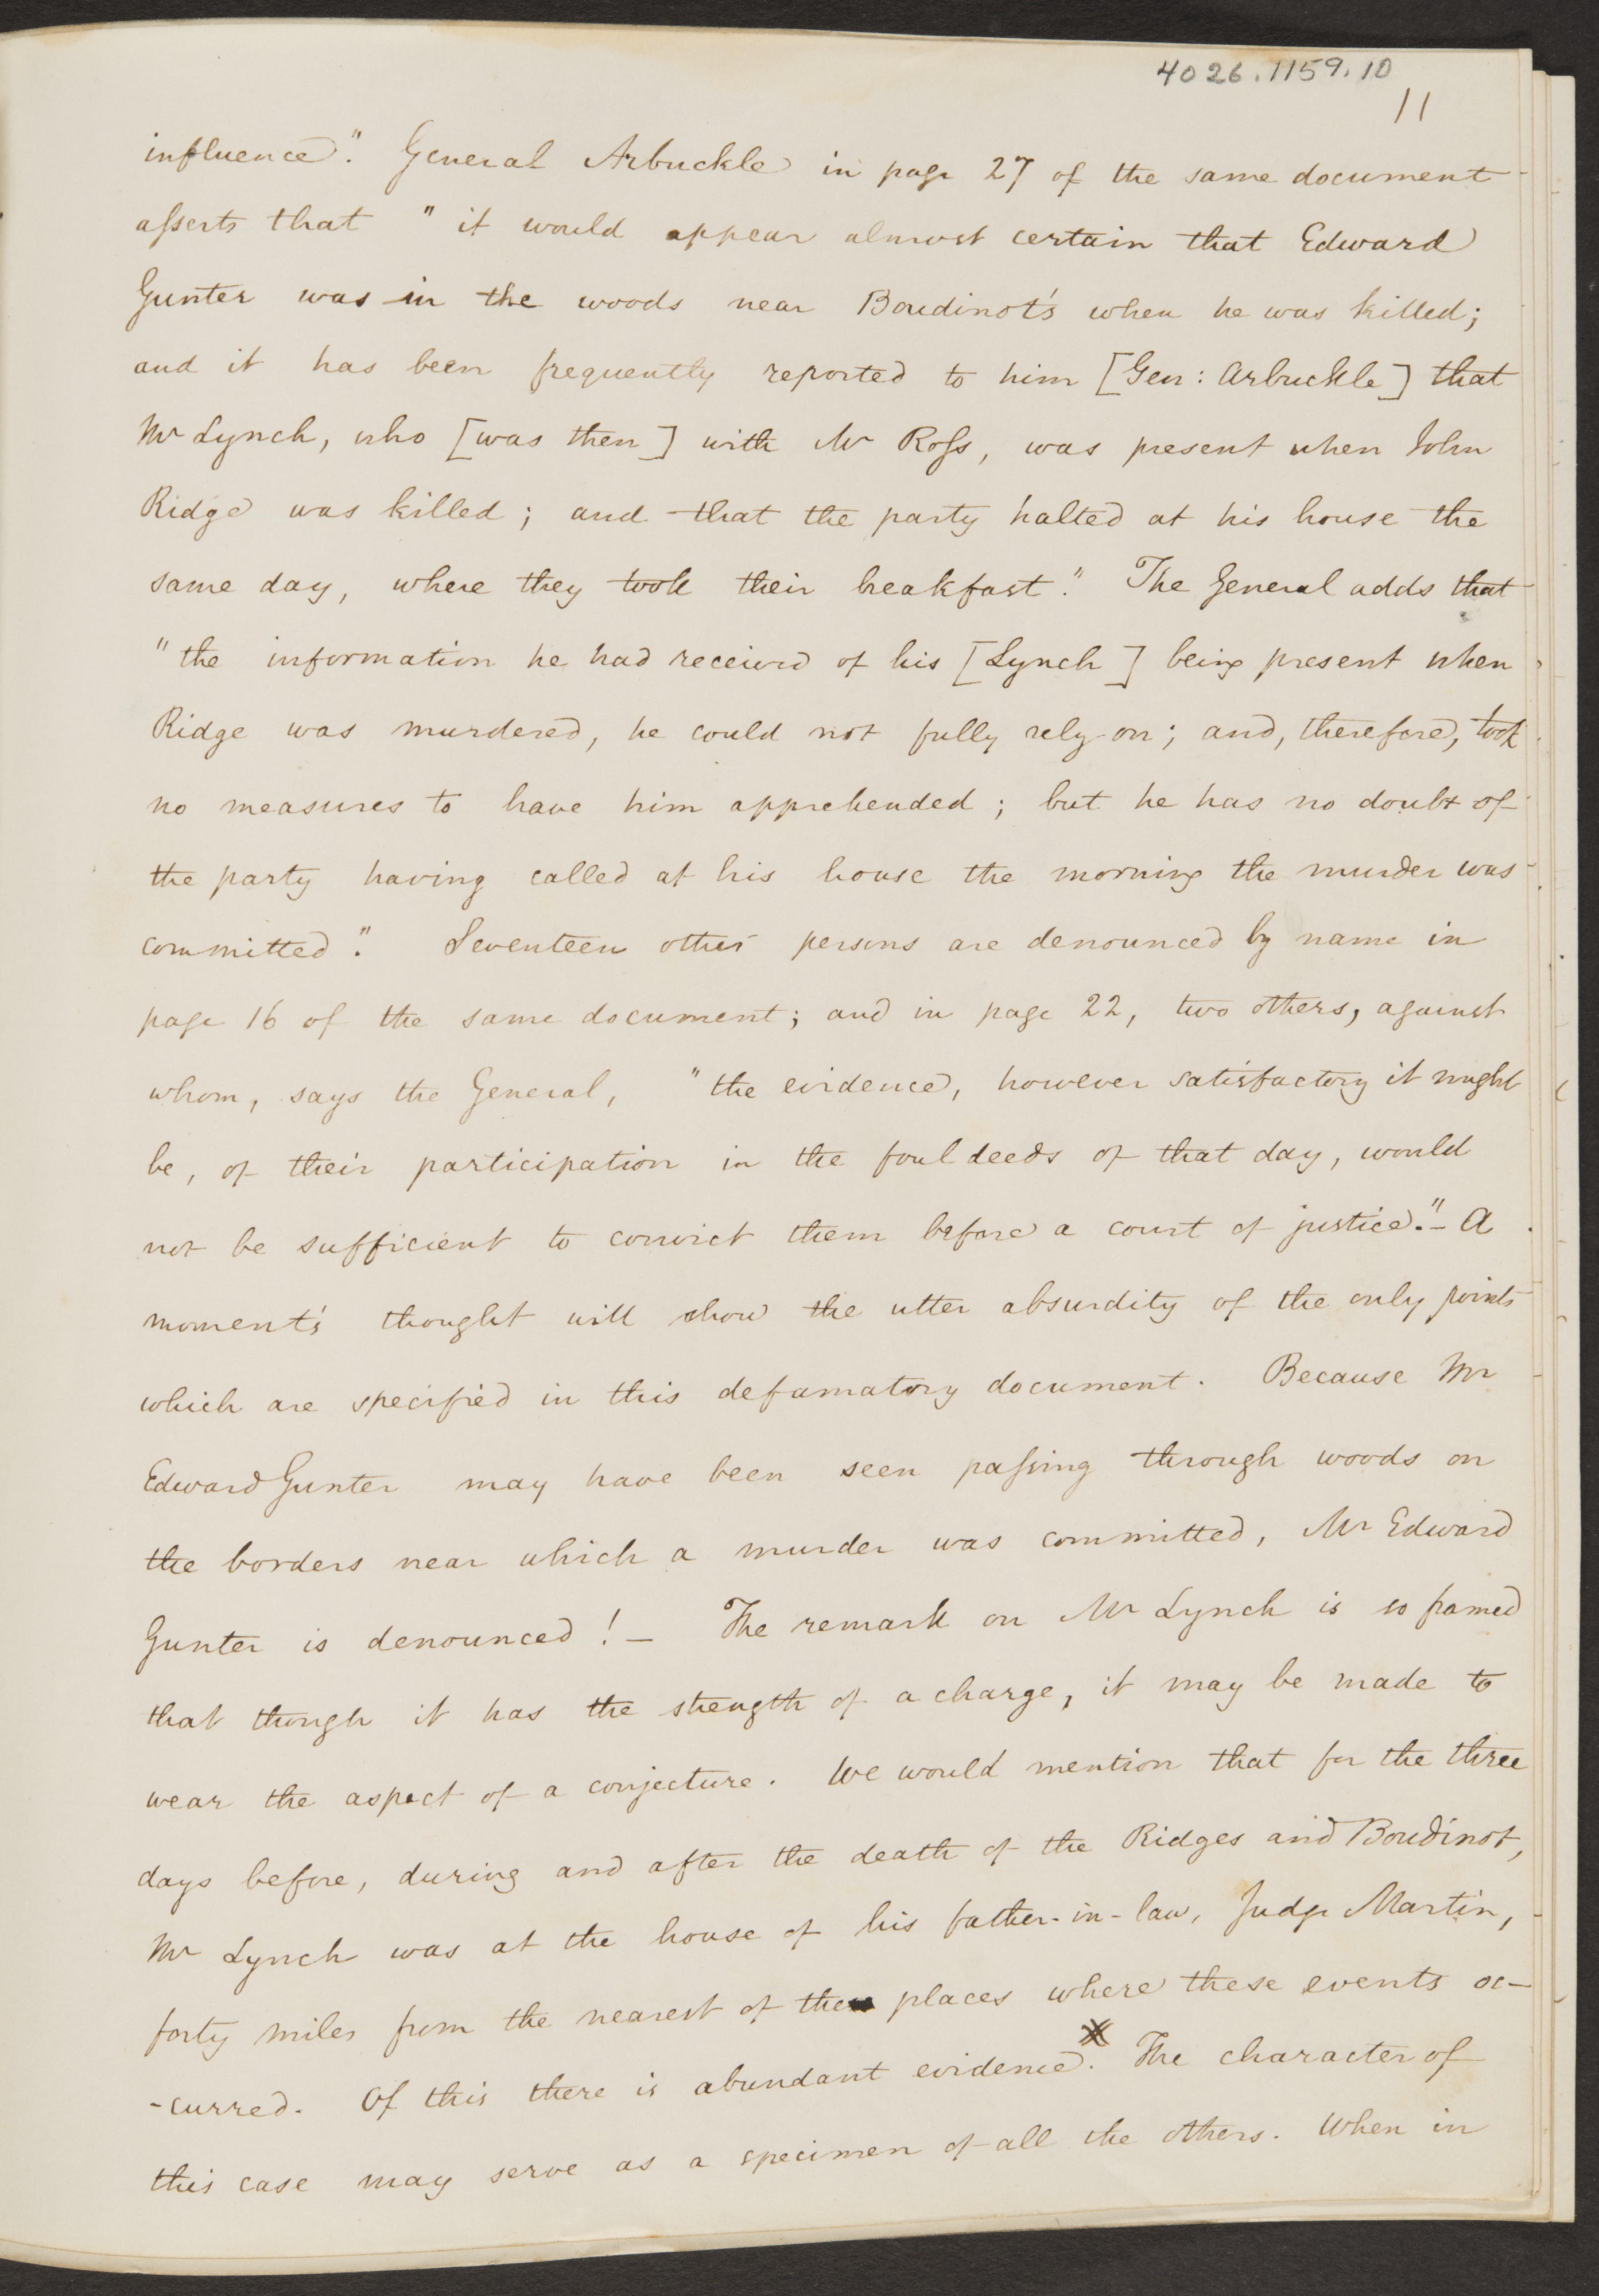 4026.1159.10
11
influence". General Arbuckle in page 27 of the same document
aſserts that " it would appear almost certain that Edward
Gunter was in the woods near Boudinot's when he was killed;
and it has been frequently reported to him [Gen: Arbuckle] that
Mr Lynch, who [was then] with Mr Roſs, was present when John
Ridge was killed; and that the party halted at his house the
same day, where they took their breakfast". The General adds that
"the information he had received of his [Lynch] being present when
Ridge was murdered, he could not fully rely on; and, therefore, took
no measures to have him apprehended; but he has no doubt of
the party having called at his house the morning the murder was
committed". Seventeen other persons are denounced by name in
page 16 of the same document; and in page 22, two others, against
whom, says the General, "the evidence, however satisfactory it might
be, of their participation in the foul deeds of that day, would
not be sufficient to convict them before a court of justice."- A
moment's thought will show the utter absurdity of the only points
which are specified in this defamatory document. Because Mr
Edward Gunter may have been seen paſsing through woods on
the borders near which a murder was committed, Mr Edward
Gunter is denounced! — The remark on Mr Lynch is so framed
that though it has the strength of a charge, it may be made to
wear the aspect of a conjecture. We would mention that for the three
days before, during and after the death of the Ridges and Boudinot,
Mr Lynch was at the house of his father-in-law, Judge Martin,
forty miles from the nearest of the places where these events oc-
-curred. Of this there is abundant evidence.* The character of
this case may serve as a specimen of all the others. When in